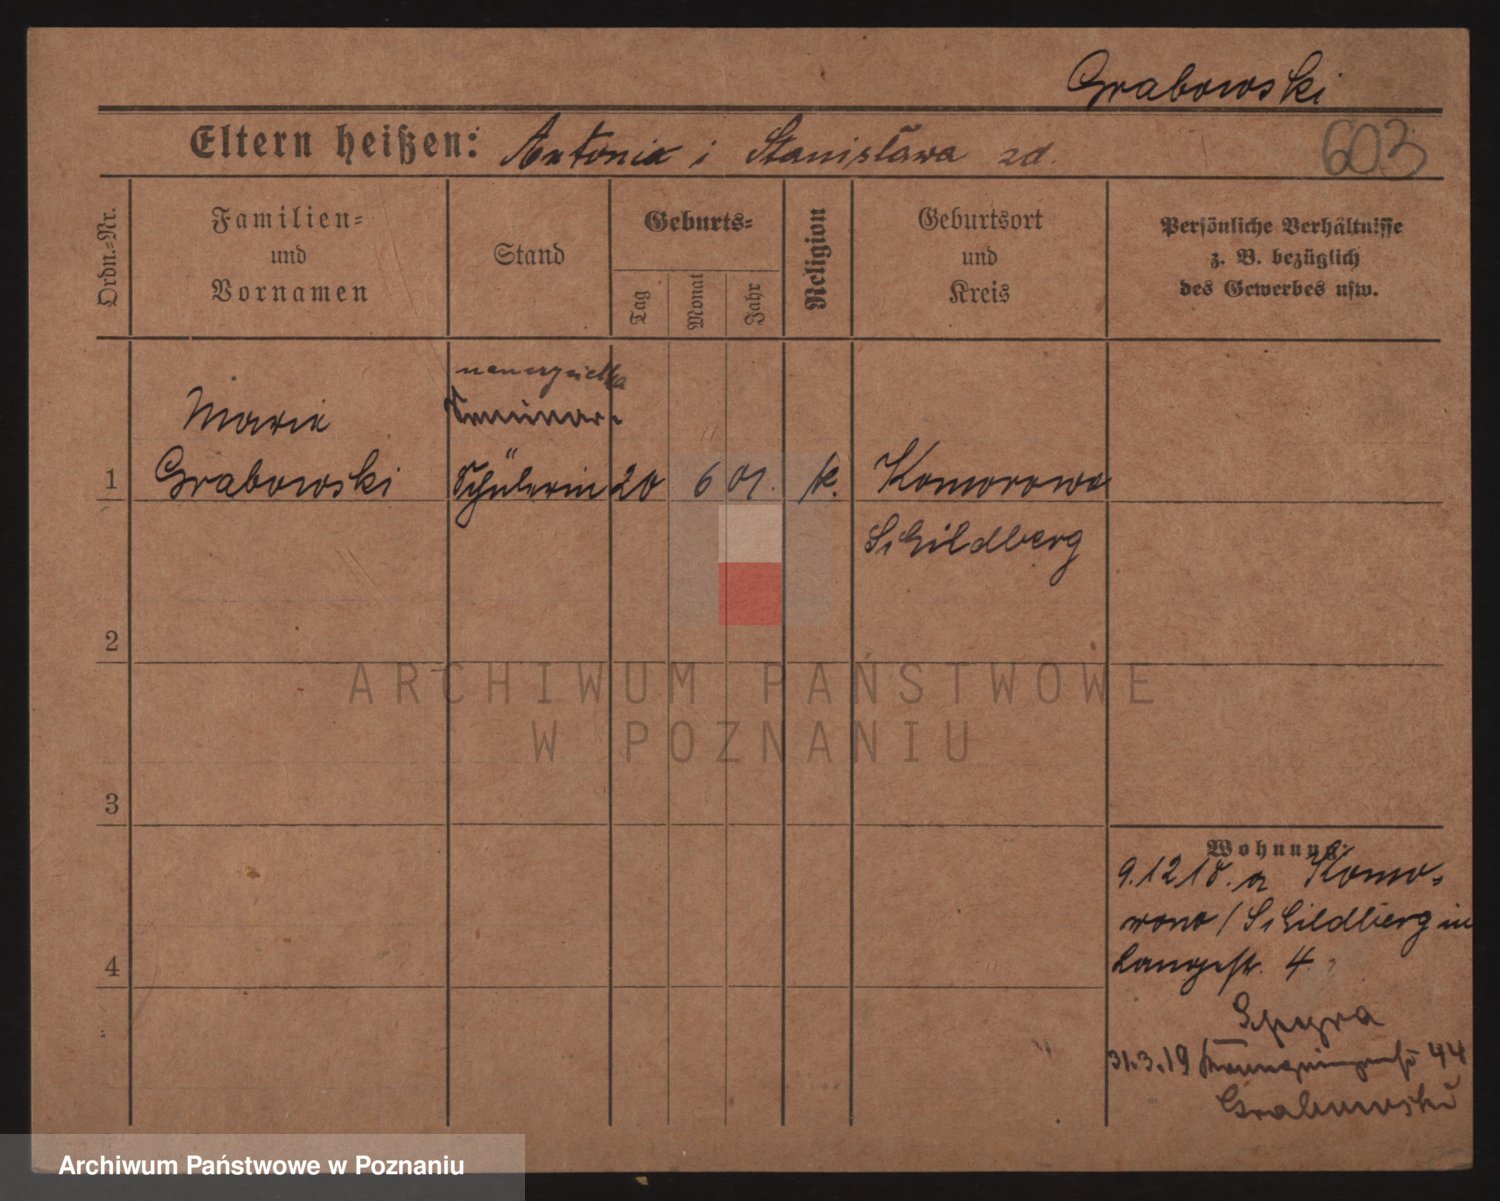 Grabowski
Eltern heißen: Antonia i Stanisława zd.
603
Ordn.-Nr.
Familien-
und
Vornamen
Stand
Geburts-
Tag
Monat
Jahr
Religion
Geburtsort
und
Kreis
Persönliche Verhältnisse
z. B. bezüglich
des Gewerbes usw.
nauczycielka
Maria
Seminar-
1 Grabowski Schülerin 20 6 01. k. Komorowo
Schildberg
2
ARCHIWUM PAŃSTWOWE
W POZNANIU
3
Wohnung:
9.12 18. a Komo-
rowo / Schildberg in
Langestr. 4.
4
31.3.19 44
Grabowski
Archiwum Państwowe w Poznaniu